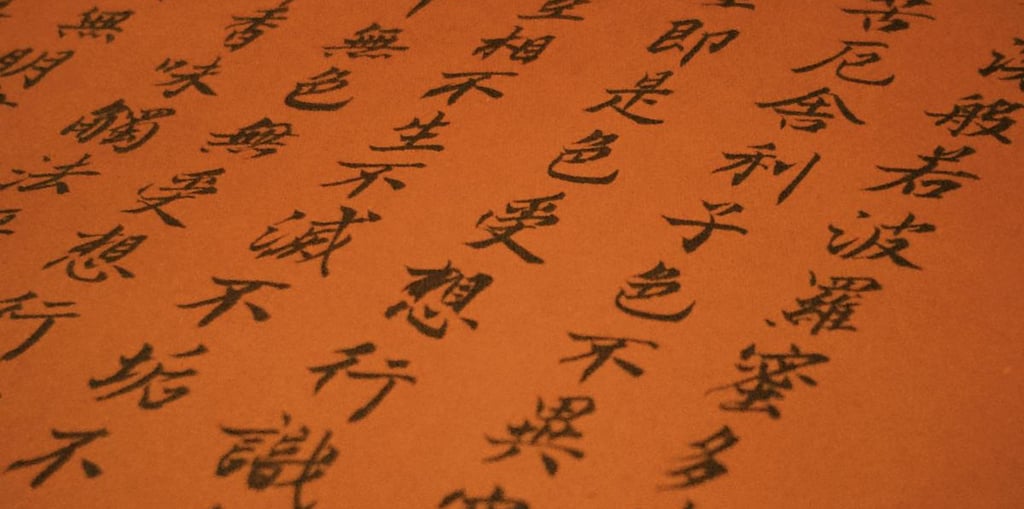 般若波羅蜜多
苦厄舍利子色不異
即是色受想行識
相不生不滅不垢不
無色無受想行
香味觸法
無明